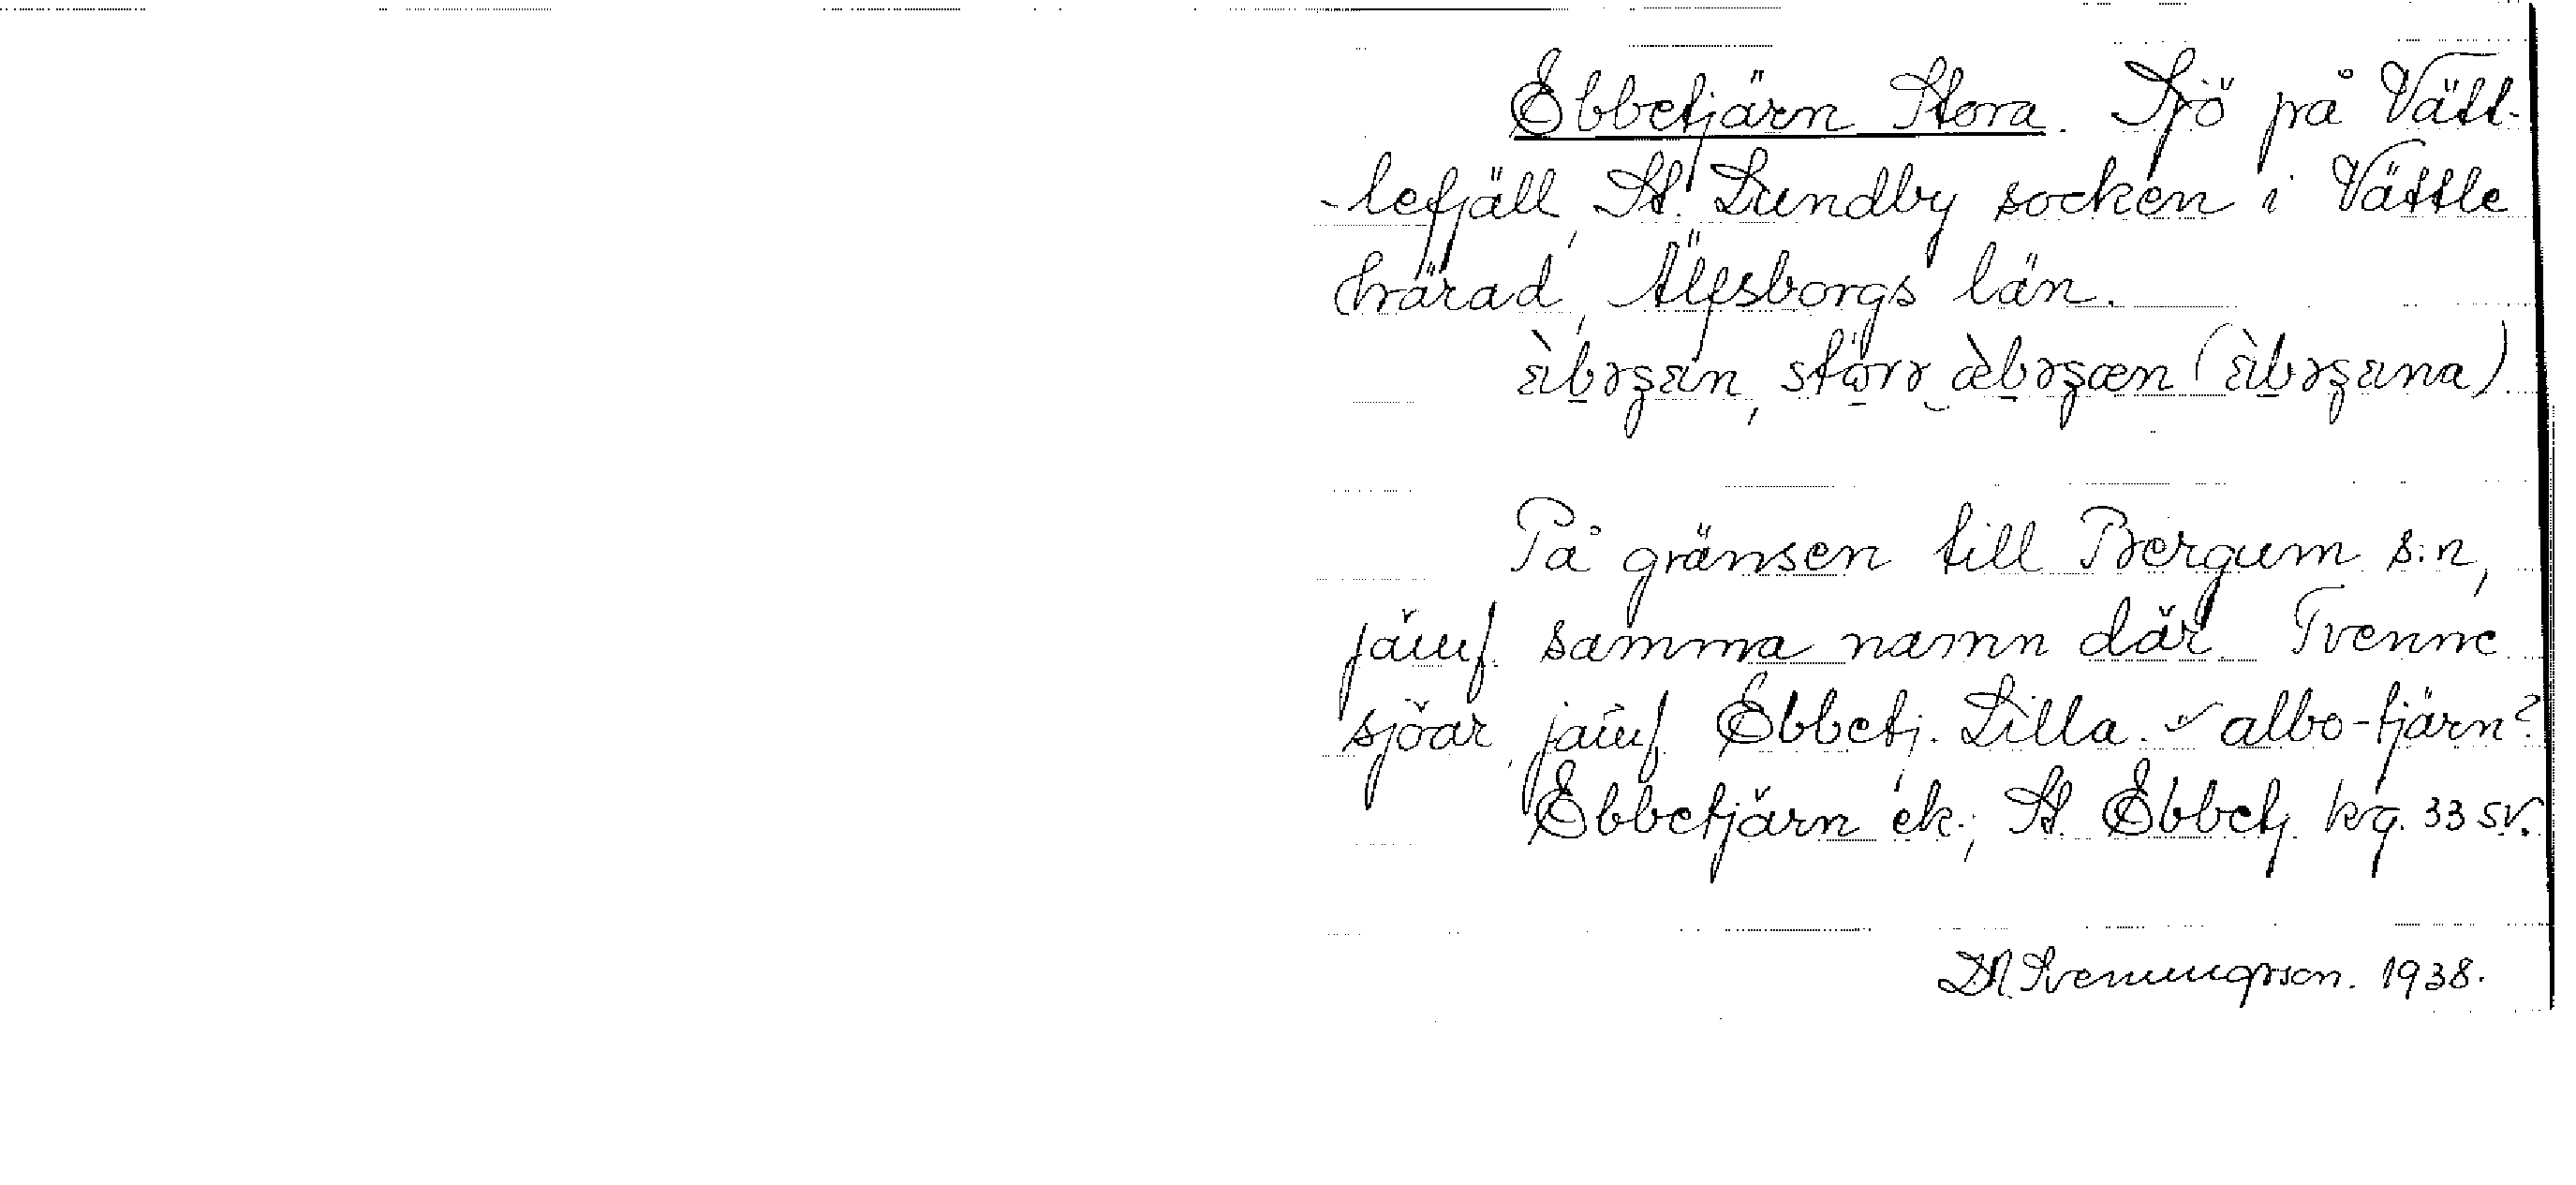 Ebbetjärn Stora. Sjö på Vätt-
-lefjäll, St. Lundby socken i Vättle
härad, Älfsborgs län.
På gränsen till Bergum s:n,
jämf. samma namn där. Tvenne
sjöar, jämf. Ebbetj. Lilla. albo-tjärn?
Ebbetjärn ek.; St. Ebbetj. kg. 33 SV.
1938.